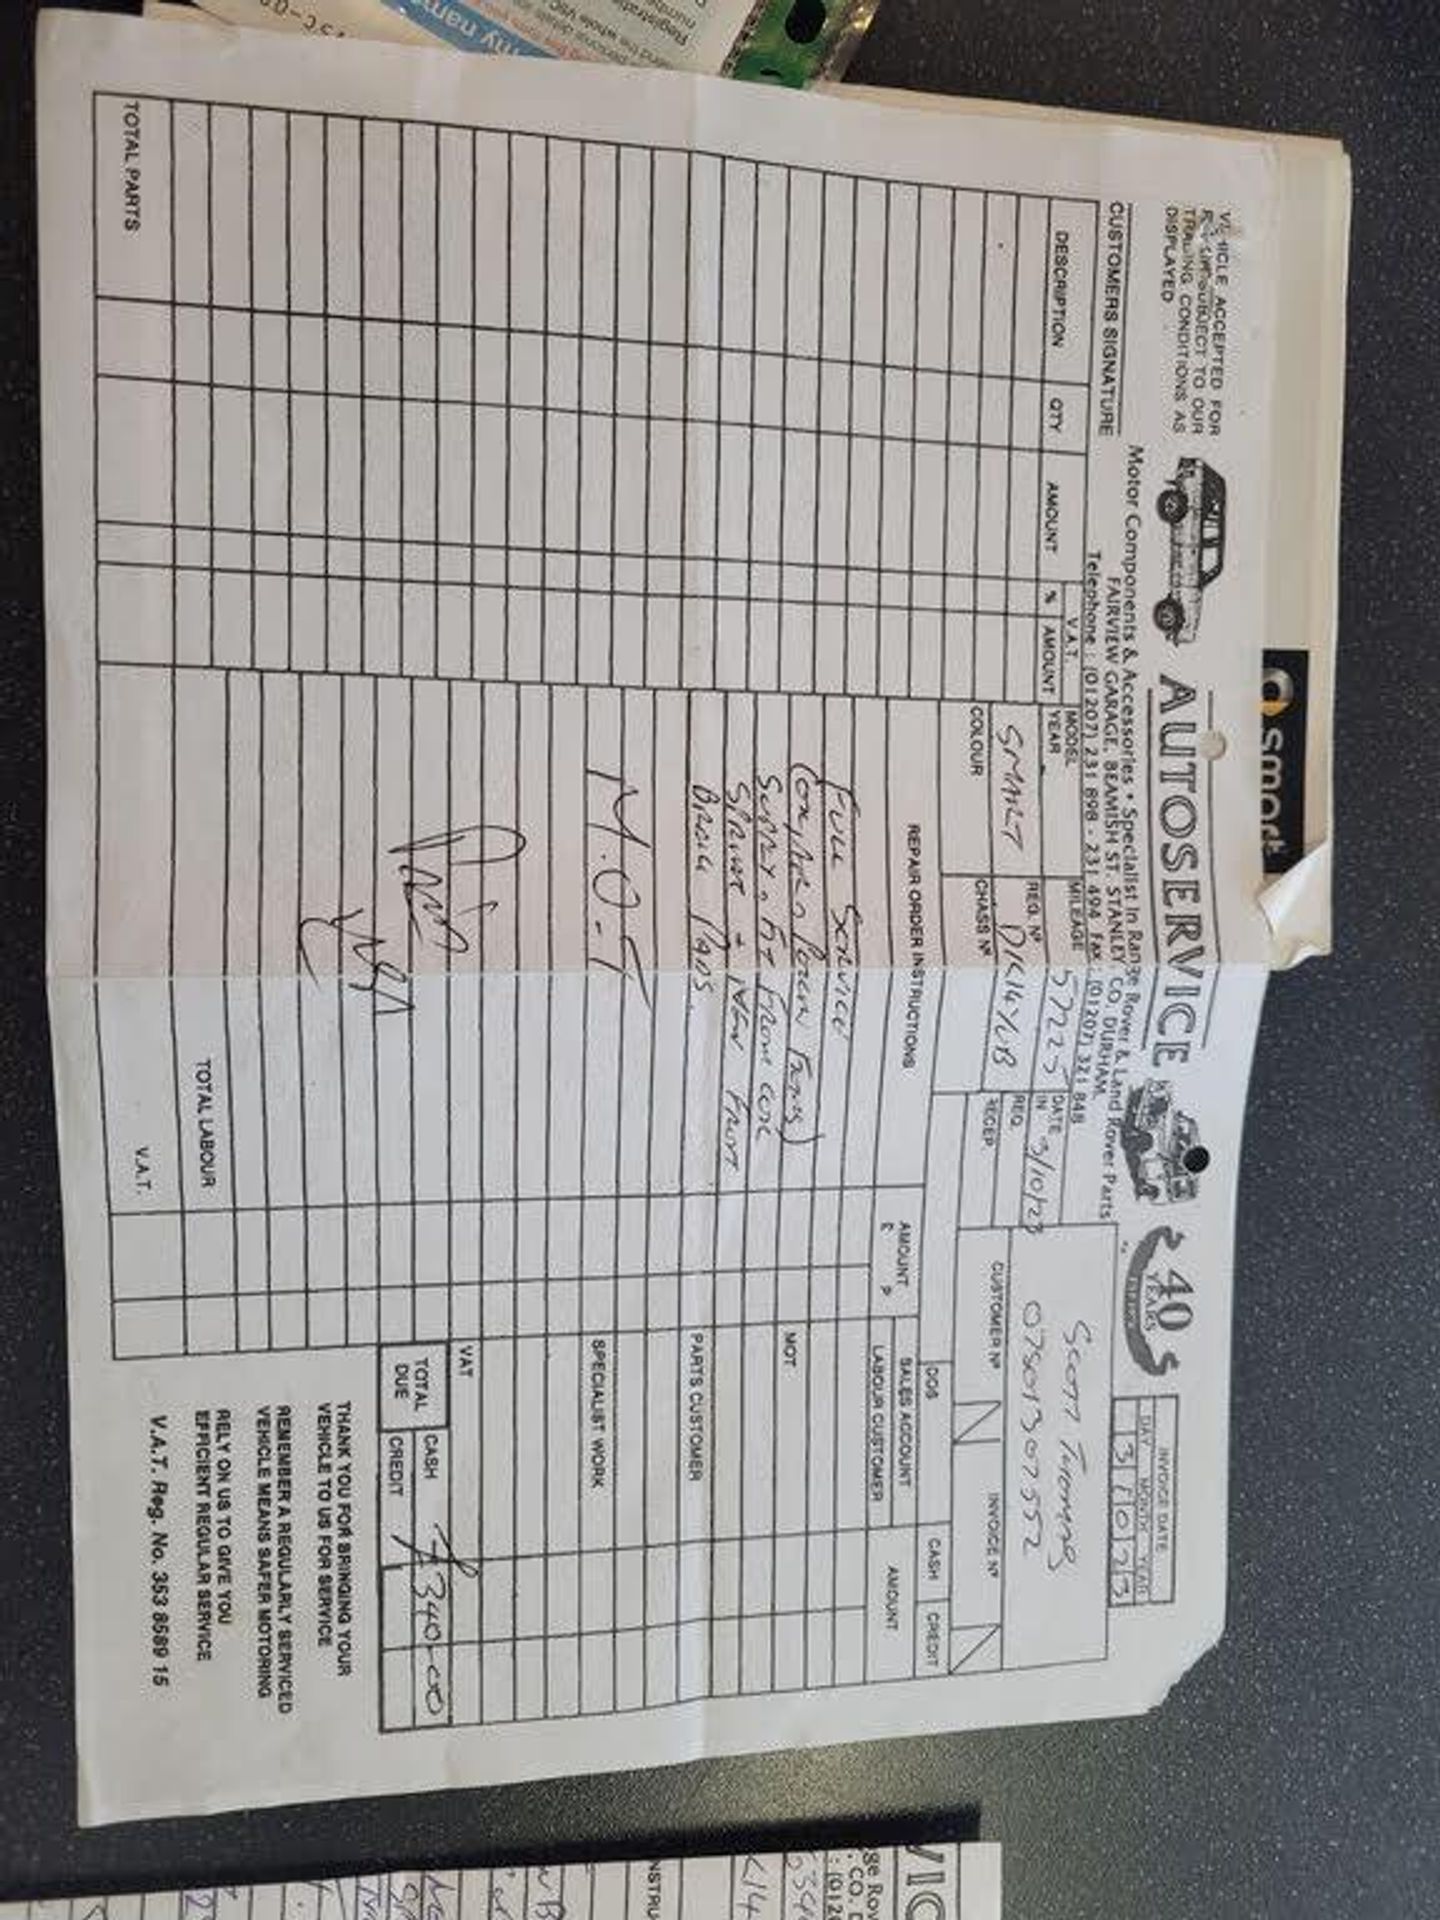 VEHICLE ACCEPTED FOR
REPAIR SUBJECT TO OUR
TRADING CONDITIONS AS
DISPLAYED
CUSTOMERS SIGNATURE
AUTOSERVICE
40
YEARS
Motor Components & Accessories • Specialist In Range Rover & Land Rover Parts
FAIRVIEW GARAGE, BEAMISH ST. STANLEY CO. DURHAM.
Telephone : (01207) 231 898 - 231 494 Fax : (01207) 321 848
INVOICE DATE
DAY MONTH YEAR
3 10 23
MODEL
YEAR
SMART
COLOUR
MILEAGE 57225
REG. Nº DK14YUB
CHASS Nº
DATE IN 3/10/23
REQ.
RECEP.
Scott
07501307552
CUSTOMER Nº
INVOICE Nº
DESCRIPTION QTY AMOUNT V.A.T. % AMOUNT
REPAIR ORDER INSTRUCTIONS
AMOUNT £ P
DOS CASH CREDIT
SALES ACCOUNT
LABOUR CUSTOMER
AMOUNT
FULL SERVICE
SUPPLY & FIT FRONT COIL
SPRING + NEW FRONT
BRAKE PADS.
M.O.T
MOT
PARTS CUSTOMER
SPECIALIST WORK
VAT
TOTAL DUE
CASH £340-00
CREDIT
TOTAL LABOUR
TOTAL PARTS
V.A.T.
THANK YOU FOR BRINGING YOUR
VEHICLE TO US FOR SERVICE
REMEMBER A REGULARLY SERVICED
VEHICLE MEANS SAFER MOTORING
RELY ON US TO GIVE YOU
EFFICIENT REGULAR SERVICE
V.A.T. Reg. No. 353 8589 15
smart